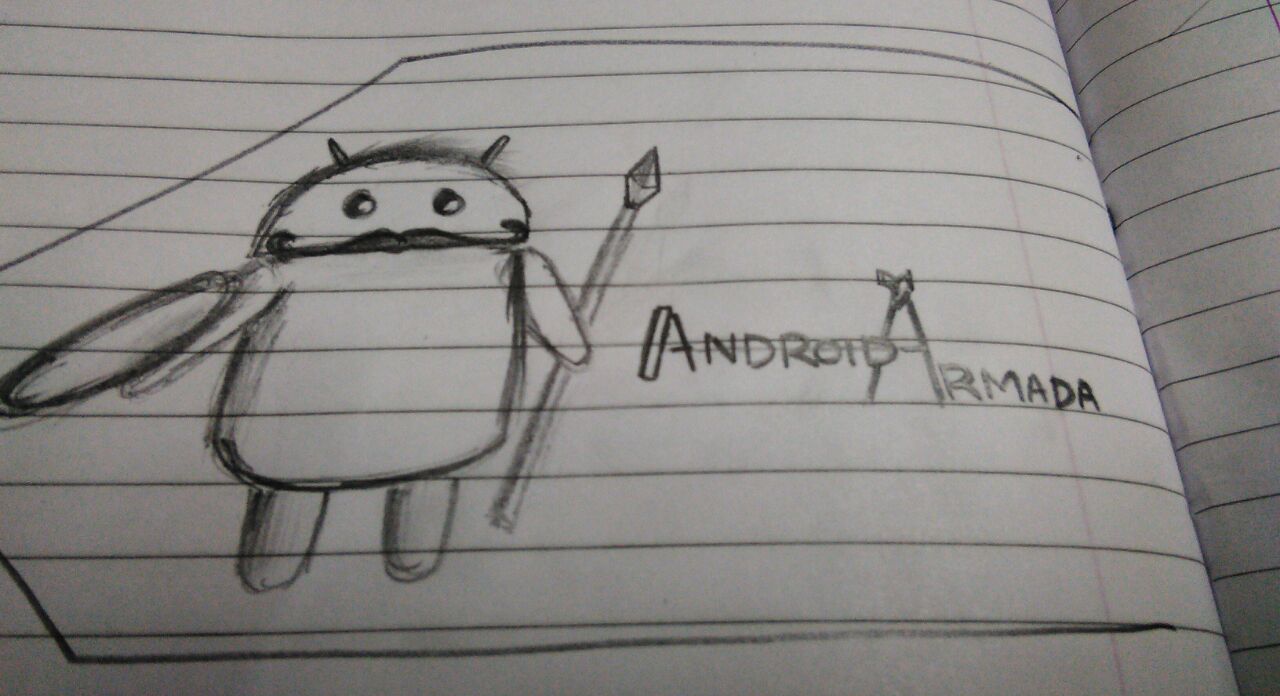 ANDROID ARMADA